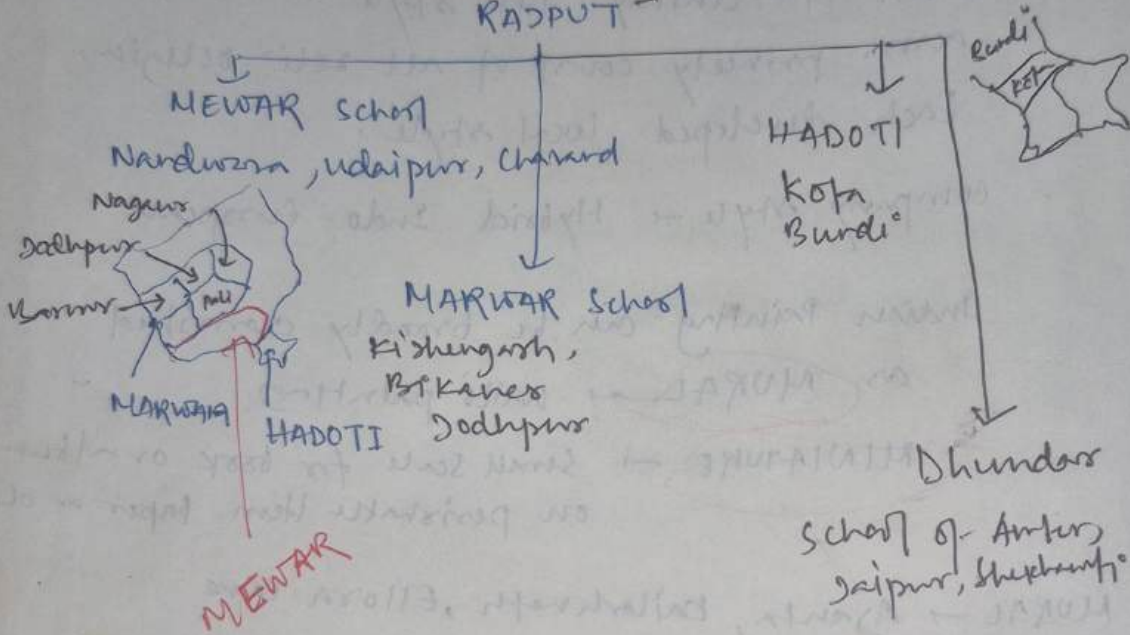 RAJPUT
MEWAR School
Nardwzra, udaipur, Chavand
Nagaur
Jodhpur
Barmer
Pali
MARWAR
HADOTI
MEWAR
MARWAR School
Kishengarh,
Bikaner
Jodhpur
HADOTI
Kota
Bundi
Bundi
Kota
Dhundar
School of Amber,
Jaipur, Shekhawati